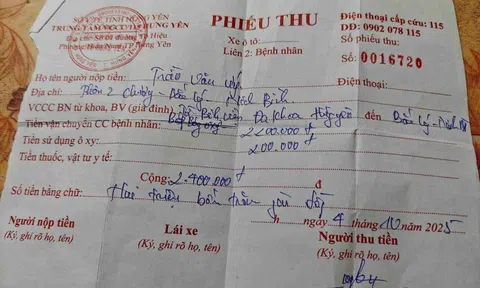 SỞ Y TẾ TỈNH HƯNG YÊN
TRUNG TÂM VCCC 115 HƯNG YÊN
Địa chỉ: Số 01 đường Tô Hiệu
Phường Hiến Nam TP Hưng Yên
PHIẾU THU
Xe ô tô:
Liên 2: Bệnh nhân
Điện thoại cấp cứu: 115
DĐ: 0902 078 115
Số phiếu thu:
Số: 0016720
Họ tên người nộp tiền: Trần Văn
Điện thoại:
Địa chỉ: Thôn 2 Lý Ninh Bình
VCCC BN từ khoa, BV (gia đình) Bệnh viện Đa khoa đến Lý
Tiền vận chuyển CC bệnh nhân: 2200.000 đ
Tiền sử dụng ô xy: 200.000đ
Tiền thuốc, vật tư y tế:
Cộng: 2.400.000 đ đ
Số tiền bằng chữ: Hai triệu bốn trăm
h ngày 4 tháng 10 năm 2025
Người nộp tiền
(Ký, ghi rõ họ, tên)
Lái xe
(Ký, ghi rõ họ, tên)
Người thu tiền
(Ký, ghi rõ họ, tên)